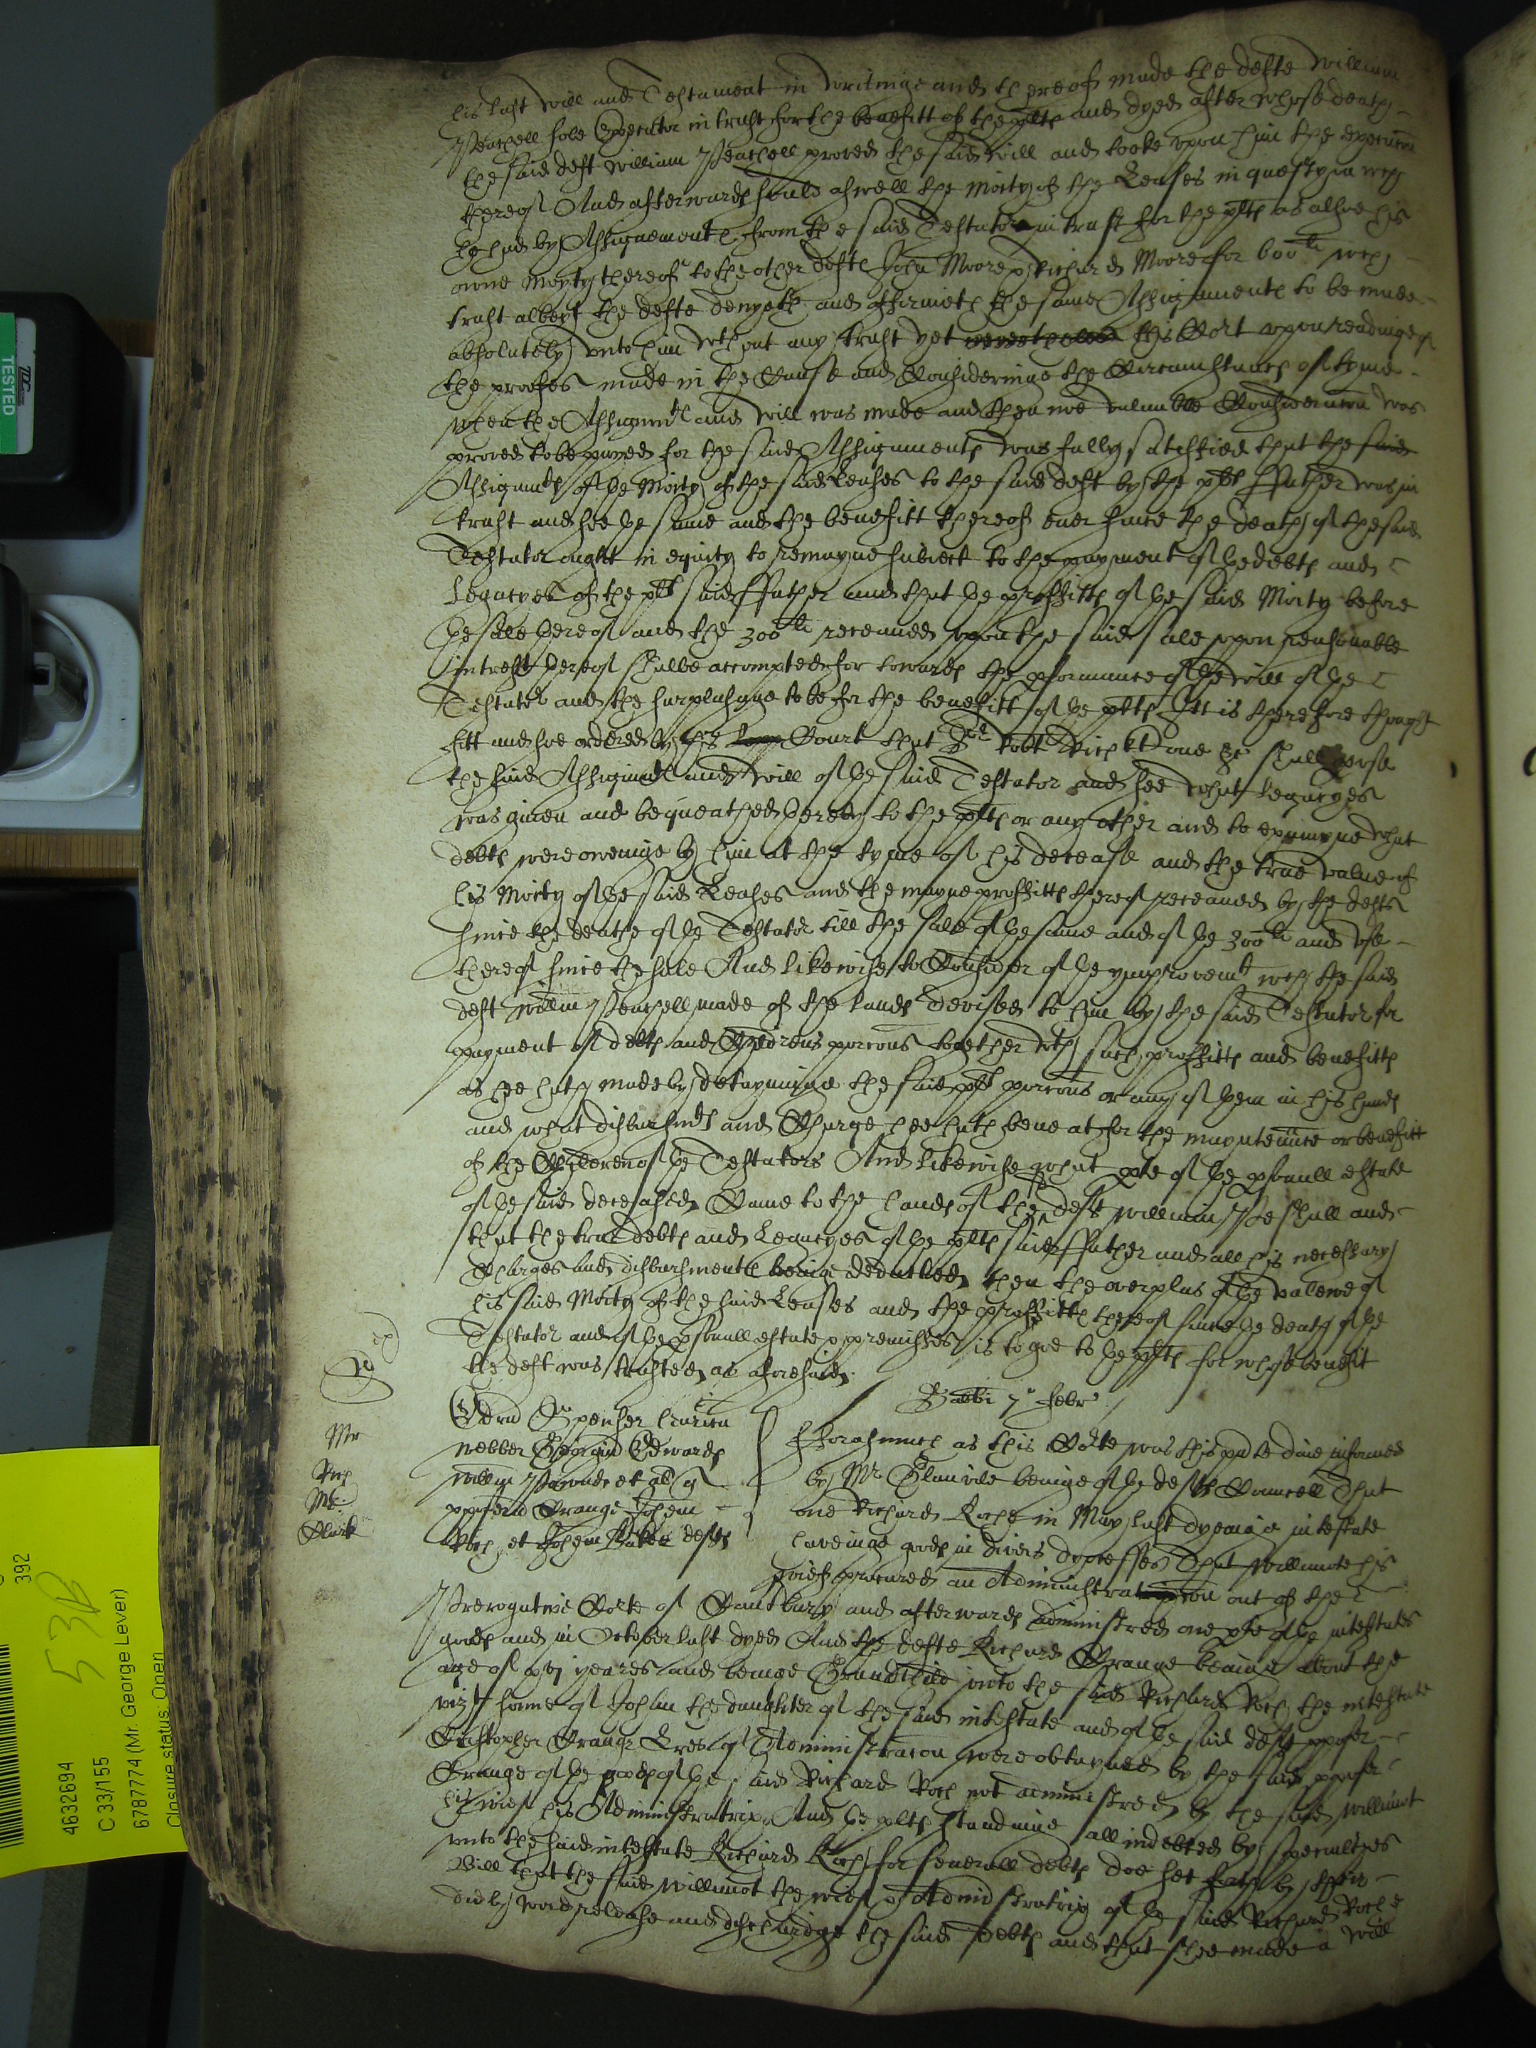 his last will and Testament in writinge and thereof made the defte William
Peachell sole Executor in trust for the benefitt of the plts and dyed after whose death
the said deft William Peachell proved the said will and tooke upon him the execucon
thereof And afterwards sould aswell the Moity of the Leases in question wch
he had by Assignemente from the said Testator in trust for the plts as alsoe his
owne Moyty thereof to the other defts John Moore & Richard Moore for 600li wch
trust albeit the defte denyeth and affirmeth the same Assignmente to be made
absolutely unto him wthout any trust yet this Cort upon readinge of
the proofes made in the Cause and Consideringe the Circumstances of tyme
when the Assignmt and will was made and then noe valuable Consideracon was
proved to be payed for the said Assignmente was fully satisfied that the said
Assignmt of the Moity of the said Leases to the said deft by the plts Father was in
trust and soe the same and the benefitt thereof ever since the death of the said
Testator ought in equity to remayne subiect to the payment of the debts and
Legacyes of the plts said Father and that the proffitts of the said Moity before
the sale thereof and the 300li receaved upon the said sale upon reasonable
intrest thereof shalbe accompted for towards the pformance of the will of the
Testator and the surplusage to be for the benefitt of the plts It is therefore thought
fitt and soe ordered by this Court that Sr Robt Rich Kt one &c shall peruse
the said Assignmt and will of the said Testator and see what legacyes
was given and bequeathed thereby to the plts or any other and to examyne what
debts were oweinge by him at the tyme of his decease and the true value of
his Moity of the said Leases and the mayne proffitts thereof receaved by the defts
since the deathe of the Testator till the sale of the same and of the 300li and use
thereof since the sale And likewise to Consider of the ymprovemt wch the said
deft Willm Peachell made of the lands devised to him by the said Testator for
payment of debts and Childrens porcons together wth such proffitts and benefitts
as hee hath made by detayninge the said plts porcons or any of them in his hands
and what disbursmts and Charge hee hath bene at for the mayntennce or benefitt
of the Children of the Testators And likewise what pte of the psonall estate
of the said deceased Came to the hands of the deft William Peachell and
that the true debts and Legacyes of the plts said Father and all his necessary
Charges and disbursments beinge deducted then the overplus of the valewe of
his said Moity of the said Leases and the proffitts thereof since the death of the
Testator and of the psonall estate & premisses is to goe to the plts for whose benefit
the deft was trusted as aforesaid
Sabbti 7o Febr
Mr
Rich
Mr
Clark
Edrus Spenser
Webber Georgius Edwards
Willm et al q
Xpoferu Orange Johem
Rich et Johem Baker defts
Forasmuch as this Corte was this pnte daie informed
by Mr Glanvile beinge of the defts Councell That
one Richard Roch in May last dyeinge intestate
haveinge goods in divers dyocesses That Willmote his
wief procured an Administracon out of the
Prerogative Corte of Cantbury and afterwards administred one pte of the intestates
goods and in October last dyed And the defte Richard Orange beinge about the
age of xvj yeares and beinge Grandchild unto the said Richard Roch the intestate
vizt sonne of Johan the daughter of the said intestate and of the said deft Xpofer
Christopher Orange Lres of Administracon were obtayned by the said Xpofer
Orange of the goods of the said Richard Roch not administred by the said Willmot
his wief his Administratrix And the plts standinge all indebted by specialtyes
unto the said intestate Richard Roch for severall debts doe set forth by their
Bill that the said Willmot the wief & Administratrix of the said Richard Roche
did by word release and discharge the said Debts and that shee made a will
4632694
C 33/155
6787774 (Mr. George Lever)
Closure status: Open
392
53B
TESTED